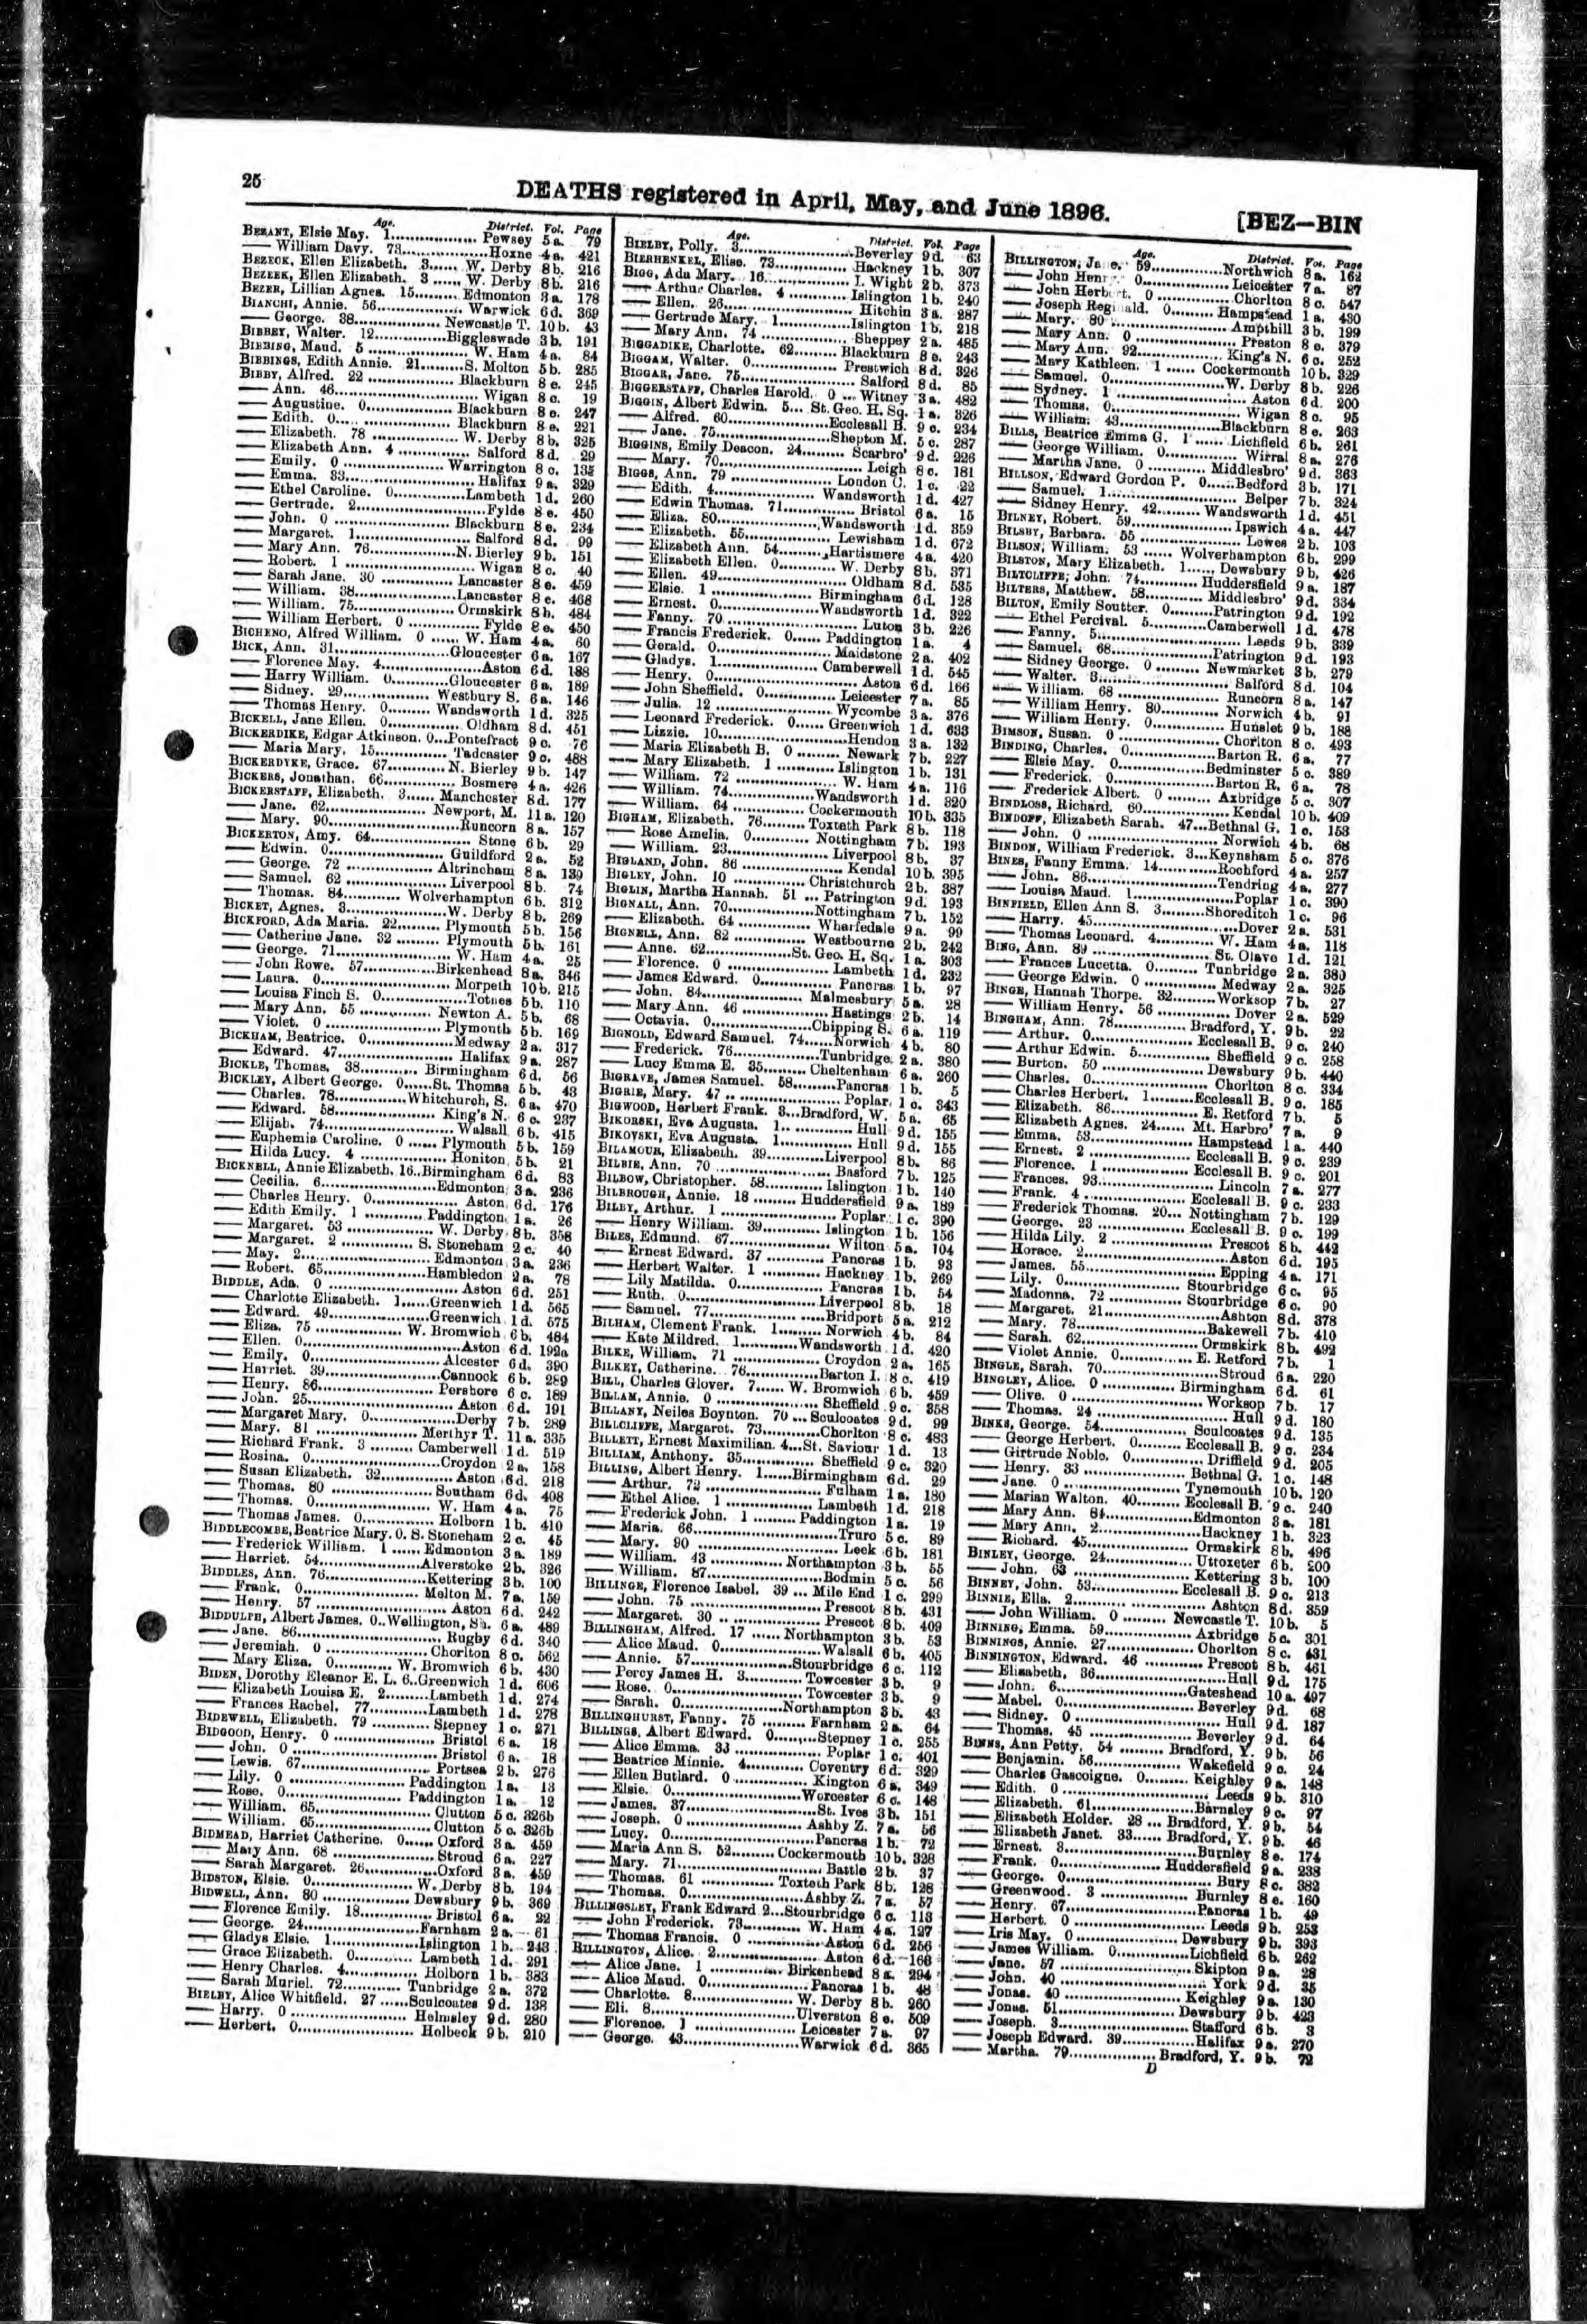 25
DEATHS registered in April, May, and June 1896.
[BEZ—BIN
Age. District. Vol. Page
BEZANT, Elsie May. 1............... Pewsey 5 a. 79
—— William Davy. 73...............Hoxne 4 a. 421
BEZECK, Ellen Elizabeth. 3...... W. Derby 8 b. 216
BEZEEK, Ellen Elizabeth. 3 ...... W. Derby 8 b. 216
BEZER, Lillian Agnes. 15......... Edmonton 3 a. 178
BIANCHI, Annie. 56.................. Warwick 6 d. 369
—— George. 38.................. Newcastle T. 10 b. 43
BIBBEY, Walter. 12...............Biggleswade 3 b. 191
BIBBING, Maud. 5 ..................... W. Ham 4 a. 84
BIBBINGS, Edith Annie. 21.........S. Molton 5 b. 285
BIBBY, Alfred. 22 .................. Blackburn 8 e. 245
—— Ann. 46........................... Wigan 8 c. 19
—— Augustine. 0.................. Blackburn 8 e. 247
—— Edith. 0........................ Blackburn 8 e. 221
—— Elizabeth. 78 .................. W. Derby 8 b. 325
—— Elizabeth Ann. 4 ............... Salford 8 d. 29
—— Emily. 0 ..................... Warrington 8 c. 135
—— Emma. 33........................... Halifax 9 a. 329
—— Ethel Caroline. 0...............Lambeth 1 d. 260
—— Gertrude. 2...........................Fylde 8 e. 450
—— John. 0 ........................ Blackburn 8 e. 234
—— Margaret. 1........................ Salford 8 d. 99
—— Mary Ann. 76..................N. Bierley 9 b. 151
—— Robert. 1 ........................... Wigan 8 c. 40
—— Sarah Jane. 30 ............... Lancaster 8 e. 459
—— William. 38.....................Lancaster 8 e. 468
—— William. 75..................... Ormskirk 8 b. 484
—— William Herbert. 0 ............... Fylde 8 e. 450
BICHENO, Alfred William. 0 ...... W. Ham 4 a. 60
BICK, Ann. 31........................Gloucester 6 a. 167
—— Florence May. 4.....................Aston 6 d. 188
—— Harry William. 0............Gloucester 6 a. 189
—— Sidney. 29.................. Westbury S. 6 a. 146
—— Thomas Henry. 0......... Wandsworth 1 d. 325
BICKELL, Jane Ellen. 0............... Oldham 8 d. 451
BICKERDIKE, Edgar Atkinson. 0...Pontefract 9 c. 76
—— Maria Mary. 15............... Tadcaster 9 c. 488
BICKERDYKE, Grace. 67............ N. Bierley 9 b. 147
BICKERS, Jonathan. 66............... Bosmere 4 a. 426
BICKERSTAFF, Elizabeth. 3...... Manchester 8 d. 177
—— Jane. 62..................... Newport, M. 11 a. 120
—— Mary. 90...........................Runcorn 8 a. 157
BICKERTON, Amy. 64..................... Stone 6 b. 29
—— Edwin. 0........................ Guildford 2 a. 52
—— George. 72 .................. Altrincham 8 a. 139
—— Samuel. 62 ..................... Liverpool 8 b. 74
—— Thomas. 84............ Wolverhampton 6 b. 312
BICKET, Agnes. 3.....................W. Derby 8 b. 269
BICKFORD, Ada Maria. 22......... Plymouth 5 b. 156
—— Catherine Jane. 32 ......... Plymouth 5 b. 161
—— George. 71........................ W. Ham 4 a. 25
—— John Rowe. 57...............Birkenhead 8 a. 346
—— Laura. 0........................... Morpeth 10 b. 215
—— Louisa Finch S. 0..................Totnes 5 b. 110
—— Mary Ann. 55 ............... Newton A. 5 b. 68
—— Violet. 0 ........................ Plymouth 5 b. 169
BICKHAM, Beatrice. 0..................Medway 2 a. 317
—— Edward. 47........................ Halifax 9 a. 287
BICKLE, Thomas. 38............ Birmingham 6 d. 56
BICKLEY, Albert George. 0......St. Thomas 5 b. 43
—— Charles. 78...............Whitchurch, S. 6 a. 470
—— Edward. 58..................... King's N. 6 c. 237
—— Elijah. 74........................... Walsall 6 b. 415
—— Euphemia Caroline. 0 ...... Plymouth 5 b. 159
—— Hilda Lucy. 4 .................. Honiton 5 b. 21
BICKNELL, Annie Elizabeth. 16..Birmingham 6 d. 83
—— Cecilia. 6........................Edmonton 3 a. 236
—— Charles Henry. 0.................. Aston 6 d. 176
—— Edith Emily. 1 ............ Paddington 1 a. 26
—— Margaret. 53 .................. W. Derby 8 b. 358
—— Margaret. 2 ............... S. Stoneham 2 c. 40
—— May. 2........................... Edmonton 3 a. 236
—— Robert. 65.....................Hambledon 2 a. 78
BIDDLE, Ada. 0 ........................... Aston 6 d. 251
—— Charlotte Elizabeth. 1......Greenwich 1 d. 565
—— Edward. 49.....................Greenwich 1 d. 575
—— Eliza. 75 .................. W. Bromwich 6 b. 484
—— Ellen. 0..............................Aston 6 d. 192a
—— Emily. 0........................... Alcester 6 d. 390
—— Harriet. 39........................Cannock 6 b. 289
—— Henry. 86........................ Pershore 6 c. 189
—— John. 25.............................. Aston 6 d. 191
—— Margaret Mary. 0..................Derby 7 b. 289
—— Mary. 81 ..................... Merthyr T. 11 a. 335
—— Richard Frank. 3 ......... Camberwell 1 d. 519
—— Rosina. 0...........................Croydon 2 a. 158
—— Susan Elizabeth. 32...............Aston 6 d. 218
—— Thomas. 80 ..................... Southam 6 d. 408
—— Thomas. 0........................ W. Ham 4 a. 75
—— Thomas James. 0............... Holborn 1 b. 410
BIDDLECOMBE, Beatrice Mary. 0. S. Stoneham 2 c. 45
—— Frederick William. 1 ...... Edmonton 3 a. 189
—— Harriet. 54.....................Alverstoke 2 b. 326
BIDDLES, Ann. 76.....................Kettering 3 b. 100
—— Frank. 0..................... Melton M. 7 a. 159
—— Henry. 57 ........................... Aston 6 d. 242
BIDDULPH, Albert James. 0..Wellington, Sa. 6 a. 489
—— Jane. 86.............................. Rugby 6 d. 340
—— Jeremiah. 0 ..................... Chorlton 8 c. 562
—— Mary Eliza. 0............ W. Bromwich 6 b. 430
BIDEN, Dorothy Eleanor E. L. 6..Greenwich 1 d. 606
—— Elizabeth Louisa E. 2.........Lambeth 1 d. 274
—— Frances Rachel. 77............Lambeth 1 d. 278
BIDEWELL, Elizabeth. 79 ............ Stepney 1 c. 271
BIDGOOD, Henry. 0 ..................... Bristol 6 a. 18
—— John. 0 .............................. Bristol 6 a. 18
—— Lewis. 67........................... Portsea 2 b. 276
—— Lily. 0 ..................... Paddington 1 a. 13
—— Rose. 0..................... Paddington 1 a. 12
—— William. 65..................... Clutton 5 c. 326b
—— William. 65..................... Clutton 5 c. 326b
BIDMEAD, Harriet Catherine. 0...... Oxford 3 a. 459
—— Mary Ann. 68 .................. Stroud 6 a. 227
—— Sarah Margaret. 26...............Oxford 3 a. 459
BIDSTON, Elsie. 0..................... W. Derby 8 b. 194
BIDWELL, Ann. 80 .................. Dewsbury 9 b. 369
—— Florence Emily. 18............... Bristol 6 a. 22
—— George. 24........................Farnham 2 a. 61
—— Gladys Elsie. 1..................Islington 1 b. 243
—— Grace Elizabeth. 0............ Lambeth 1 d. 291
—— Henry Charles. 4............... Holborn 1 b. 383
—— Sarah Muriel. 72............ Tunbridge 2 a. 372
BIELBY, Alice Whitfield. 27 ......Sculcoates 9 d. 138
—— Harry. 0 ........................ Helmsley 9 d. 280
—— Herbert. 0........................ Holbeck 9 b. 210
Age. District. Vol. Page
BIELBY, Polly. 3.....................Beverley 9 d. 63
BIERHENKEL, Elise. 73............... Hackney 1 b. 307
BIGG, Ada Mary. 16.................. I. Wight 2 b. 373
—— Arthur Charles. 4 ............ Islington 1 b. 240
—— Ellen. 26........................... Hitchin 3 a. 287
—— Gertrude Mary. 1...............Islington 1 b. 218
—— Mary Ann. 74 .................. Sheppey 2 a. 485
BIGGADIKE, Charlotte. 62......... Blackburn 8 e. 243
BIGGAM, Walter. 0.................. Prestwich 8 d. 326
BIGGAR, Jane. 75........................ Salford 8 d. 85
BIGGERSTAFF, Charles Harold. 0 ... Witney 3 a. 482
BIGGIN, Albert Edwin. 5... St. Geo. H. Sq. 1 a. 326
—— Alfred. 60.....................Ecclesall B. 9 c. 234
—— Jane. 75........................Shepton M. 5 c. 287
BIGGINS, Emily Deacon. 24......... Scarbro' 9 d. 226
—— Mary. 70.............................. Leigh 8 c. 181
BIGGS, Ann. 79 ..................... London C. 1 c. 22
—— Edith. 4..................... Wandsworth 1 d. 427
—— Edwin Thomas. 71............... Bristol 6 a. 15
—— Eliza. 80..................... Wandsworth 1 d. 359
—— Elizabeth. 55.................. Lewisham 1 d. 672
—— Elizabeth Ann. 54.........Hartismere 4 a. 420
—— Elizabeth Ellen. 0............ W. Derby 8 b. 371
—— Ellen. 49........................... Oldham 8 d. 535
—— Elsie. 1 ..................... Birmingham 6 d. 128
—— Ernest. 0.....................Wandsworth 1 d. 322
—— Fanny. 70 ........................... Luton 3 b. 226
—— Francis Frederick. 0...... Paddington 1 a. 4
—— Gerald. 0..................... Maidstone 2 a. 402
—— Gladys. 1..................... Camberwell 1 d. 545
—— Henry. 0.............................. Aston 6 d. 166
—— John Sheffield. 0............... Leicester 7 a. 85
—— Julia. 12 ........................ Wycombe 3 a. 376
—— Leonard Frederick. 0...... Greenwich 1 d. 633
—— Lizzie. 10...........................Hendon 3 a. 132
—— Maria Elizabeth B. 0 ......... Newark 7 b. 227
—— Mary Elizabeth. 1 ............ Islington 1 b. 131
—— William. 72 ..................... W. Ham 4 a. 116
—— William. 74..................Wandsworth 1 d. 320
—— William. 64 ............... Cockermouth 10 b. 335
BIGHAM, Elizabeth. 76......... Toxteth Park 8 b. 118
—— Rose Amelia. 0............ Nottingham 7 b. 193
—— William. 23..................... Liverpool 8 b. 37
BIGLAND, John. 86 ..................... Kendal 10 b. 395
BIGLEY, John. 10 ............... Christchurch 2 b. 387
BIGLIN, Martha Hannah. 51 ... Patrington 9 d. 193
BIGNALL, Ann. 70..................Nottingham 7 b. 152
—— Elizabeth. 64 ............... Wharfedale 9 a. 99
BIGNELL, Ann. 82 .................. Westbourne 2 b. 242
—— Anne. 62..................St. Geo. H. Sq. 1 a. 303
—— Florence. 0 ..................... Lambeth 1 d. 232
—— James Edward. 0............... Pancras 1 b. 97
—— John. 84..................... Malmesbury 5 a. 28
—— Mary Ann. 46 .................. Hastings 2 b. 14
—— Octavia. 0..................Chipping S. 6 a. 119
BIGNOLD, Edward Samuel. 74......Norwich 4 b. 80
—— Frederick. 76...............Tunbridge. 2 a. 380
—— Lucy Emma E. 35...... Cheltenham 6 a. 260
BIGRAVE, James Samuel. 58.........Pancras 1 b. 5
BIGRIE, Mary. 47 ........................ Poplar 1 c. 343
BIGWOOD, Herbert Frank. 3...Bradford, W. 5 a. 65
BIKORSKI, Eva Augusta. 1............... Hull 9 d. 155
BIKOYSKI, Eva Augusta. 1............... Hull 9 d. 155
BILAMOUR, Elizabeth. 39............Liverpool 8 b. 86
BILBIE, Ann. 70 ........................ Basford 7 b. 125
BILBOW, Christopher. 58............ Islington 1 b. 140
BILBROUGH, Annie. 18 ......... Huddersfield 9 a. 189
BILBY, Arthur. 1 ........................ Poplar 1 c. 390
—— Henry William. 39............ Islington 1 b. 156
BILES, Edmund. 67..................... Wilton 5 a. 104
—— Ernest Edward. 37 ............ Pancras 1 b. 93
—— Herbert Walter. 1 ............ Hackney 1 b. 269
—— Lily Matilda. 0.................. Pancras 1 b. 54
—— Ruth. 0........................Liverpool 8 b. 18
—— Samuel. 77........................Bridport 5 a. 212
BILHAM, Clement Frank. 1......... Norwich 4 b. 84
—— Kate Mildred. 1............Wandsworth 1 d. 420
BILKE, William. 71 .................. Croydon 2 a. 165
BILKEY, Catherine. 76...............Barton I. 8 c. 419
BILL, Charles Glover. 7...... W. Bromwich 6 b. 459
BILLAM, Annie. 0 ..................... Sheffield 9 c. 358
BILLANY, Neiles Boynton. 70 ... Sculcoates 9 d. 99
BILLCLIFFE, Margaret. 73............Chorlton 8 c. 483
BILLETT, Ernest Maximilian. 4...St. Saviour 1 d. 13
BILLIAM, Anthony. 35............... Sheffield 9 c. 320
BILLING, Albert Henry. 1......Birmingham 6 d. 29
—— Arthur. 72 ........................ Fulham 1 a. 180
—— Ethel Alice. 1 .................. Lambeth 1 d. 218
—— Frederick John. 1 ......... Paddington 1 a. 19
—— Maria. 66...........................Truro 5 c. 89
—— Mary. 90 ........................... Leek 6 b. 181
—— William. 43 ............... Northampton 3 b. 55
—— William. 87........................ Bodmin 5 c. 56
BILLINGE, Florence Isabel. 39 ... Mile End 1 c. 299
—— John. 75 ........................... Prescot 8 b. 431
—— Margaret. 30 ..................... Prescot 8 b. 409
BILLINGHAM, Alfred. 17 ...... Northampton 3 b. 53
—— Alice Maud. 0.....................Walsall 6 b. 405
—— Annie. 57.....................Stourbridge 6 c. 112
—— Percy James H. 3............ Towcester 3 b. 9
—— Rose. 0........................ Towcester 3 b. 9
—— Sarah. 0.....................Northampton 3 b. 43
BILLINGHURST, Fanny. 75 ......... Farnham 2 a. 64
BILLINGS, Albert Edward. 0.........Stepney 1 c. 255
—— Alice Emma. 33 .................. Poplar 1 c. 401
—— Beatrice Minnie. 4............ Coventry 6 d. 329
—— Ellen Butlard. 0 ............... Kington 6 a. 349
—— Elsie. 0........................Worcester 6 c. 148
—— James. 37........................St. Ives 3 b. 151
—— Joseph. 0 ..................... Ashby Z. 7 a. 56
—— Lucy. 0...........................Pancras 1 b. 72
—— Maria Ann S. 52......... Cockermouth 10 b. 328
—— Mary. 71........................... Battle 2 b. 37
—— Thomas. 61 ............... Toxteth Park 8 b. 126
—— Thomas. 0.....................Ashby Z. 7 a. 57
BILLINGSLEY, Frank Edward 2...Stourbridge 6 c. 113
—— John Frederick. 73............ W. Ham 4 a. 127
—— Thomas Francis. 0 ............... Aston 6 d. 256
BILLINGTON, Alice. 2.................. Aston 6 d. 166
—— Alice Jane. 1 ............... Birkenhead 8 a. 294
—— Alice Maud. 0.................. Pancras 1 b. 48
—— Charlotte. 8.................. W. Derby 8 b. 260
—— Eli. 8........................... Ulverston 8 e. 509
—— Florence. 1 .................. Leicester 7 a. 97
—— George. 43.....................Warwick 6 d. 365
Age. District. Vol. Page
BILLINGTON, Ja e. 59...............Northwich 8 a. 162
—— John Henry. 0.................. Leicester 7 a. 87
—— John Herbert. 0 ............... Chorlton 8 c. 547
—— Joseph Reginald. 0......... Hampstead 1 a. 430
—— Mary. 80 ........................ Ampthill 3 b. 199
—— Mary Ann. 0 ..................... Preston 8 e. 379
—— Mary Ann. 92.................. King's N. 6 c. 252
—— Mary Kathleen. 1 ...... Cockermouth 10 b. 329
—— Samuel. 0........................W. Derby 8 b. 226
—— Sydney. 1 ........................... Aston 6 d. 200
—— Thomas. 0........................... Wigan 8 c. 95
—— William. 43.....................Blackburn 8 e. 263
BILLS, Beatrice Emma G. 1 ...... Lichfield 6 b. 261
—— George William. 0............... Wirral 8 a. 276
—— Martha Jane. 0 ............ Middlesbro' 9 d. 363
BILLSON, Edward Gordon P. 0......Bedford 3 b. 171
—— Samuel. 1........................... Belper 7 b. 324
—— Sidney Henry. 42......... Wandsworth 1 d. 451
BILNEY, Robert. 59..................... Ipswich 4 a. 447
BILSBY, Barbara. 55 ..................... Lewes 2 b. 103
BILSON, William. 53 ...... Wolverhampton 6 b. 299
BILSTON, Mary Elizabeth. 1...... Dewsbury 9 b. 426
BILTCLIFFE, John. 74............ Huddersfield 9 a. 187
BILTERS, Matthew. 58............ Middlesbro' 9 d. 334
BILTON, Emily Soutter. 0.........Patrington 9 d. 192
—— Ethel Percival. 5............Camberwell 1 d. 478
—— Fanny. 5.............................. Leeds 9 b. 339
—— Samuel. 68.....................Patrington 9 d. 193
—— Sidney George. 0 ......... Newmarket 3 b. 279
—— Walter. 3........................... Salford 8 d. 104
—— William. 68 ..................... Runcorn 8 a. 147
—— William Henry. 80............ Norwich 4 b. 91
—— William Henry. 0............... Hunslet 9 b. 188
BIMSON, Susan. 0 ..................... Chorlton 8 c. 493
BINDING, Charles. 0.................. Barton R. 6 a. 77
—— Elsie May. 0..................Bedminster 5 c. 389
—— Frederick. 0..................... Barton R. 6 a. 78
—— Frederick Albert. 0 ......... Axbridge 5 c. 307
BINDLOSS, Richard. 60.................. Kendal 10 b. 409
BINDOFF, Elizabeth Sarah. 47...Bethnal G. 1 c. 153
—— John. 0 ........................... Norwich 4 b. 68
BINDON, William Frederick. 3...Keynsham 5 c. 376
BINES, Fanny Emma. 14............... Rochford 4 a. 257
—— John. 86........................... Tendring 4 a. 277
—— Louisa Maud. 1.....................Poplar 1 c. 390
BINFIELD, Ellen Ann S. 3.........Shoreditch 1 c. 96
—— Harry. 45...........................Dover 2 a. 531
—— Thomas Leonard. 4............ W. Ham 4 a. 118
BING, Ann. 89 ........................ St. Olave 1 d. 121
—— Frances Lucetta. 0......... Tunbridge 2 a. 380
—— George Edwin. 0 ............... Medway 2 a. 325
BINGE, Hannah Thorpe. 32.........Worksop 7 b. 27
—— William Henry. 56 ............... Dover 2 a. 529
BINGHAM, Ann. 78............... Bradford, Y. 9 b. 22
—— Arthur. 0..................... Ecclesall B. 9 c. 240
—— Arthur Edwin. 5............... Sheffield 9 c. 258
—— Burton. 50 ..................... Dewsbury 9 b. 440
—— Charles. 0........................ Chorlton 8 c. 334
—— Charles Herbert. 1.........Ecclesall B. 9 c. 185
—— Elizabeth. 86.................. E. Retford 7 b. 5
—— Elizabeth Agnes. 24...... Mt. Harbro' 7 a. 9
—— Emma. 53..................... Hampstead 1 a. 440
—— Ernest. 2 ..................... Ecclesall B. 9 c. 239
—— Florence. 1 .................. Ecclesall B. 9 c. 201
—— Frances. 93........................ Lincoln 7 a. 277
—— Frank. 4 ..................... Ecclesall B. 9 c. 233
—— Frederick Thomas. 20... Nottingham 7 b. 129
—— George. 23 .................. Ecclesall B. 9 c. 199
—— Hilda Lily. 2 ..................... Prescot 8 b. 442
—— Horace. 2...........................Aston 6 d. 195
—— James. 55........................... Epping 4 a. 171
—— Lily. 0........................ Stourbridge 6 c. 95
—— Madonna. 72 ............... Stourbridge 6 c. 90
—— Margaret. 21........................Ashton 8 d. 378
—— Mary. 78........................Bakewell 7 b. 410
—— Sarah. 62........................ Ormskirk 8 b. 492
—— Violet Annie. 0............ E. Retford 7 b. 1
BINGLE, Sarah. 70........................Stroud 6 a. 220
BINGLEY, Alice. 0 ............... Birmingham 6 d. 61
—— Olive. 0 ........................ Worksop 7 b. 17
—— Thomas. 24 ........................... Hull 9 d. 180
BINKS, George. 54.................. Sculcoates 9 d. 135
—— George Herbert. 0......... Ecclesall B. 9 c. 234
—— Girtrude Noble. 0............... Driffield 9 d. 205
—— Henry. 33 ..................... Bethnal G. 1 c. 148
—— Jane. 0 ........................ Tynemouth 10 b. 120
—— Marian Walton. 40......... Ecclesall B. 9 c. 240
—— Mary Ann. 84..................Edmonton 3 a. 181
—— Mary Ann. 2.....................Hackney 1 b. 323
—— Richard. 45..................... Ormskirk 8 b. 496
BINLEY, George. 24..................... Uttoxeter 6 b. 200
—— John. 63 ........................ Kettering 3 b. 100
BINNEY, John. 53.................. Ecclesall B. 9 c. 213
BINNIE, Ella. 2........................... Ashton 8 d. 359
—— John William. 0 ......... Newcastle T. 10 b. 5
BINNING, Emma. 59.................. Axbridge 5 c. 301
BINNINGS, Annie. 27.................. Chorlton 8 c. 431
BINNINGTON, Edward. 46 ............ Prescot 8 b. 461
—— Elizabeth. 36........................Hull 9 d. 175
—— John. 6........................Gateshead 10 a. 497
—— Mabel. 0........................ Beverley 9 d. 68
—— Sidney. 0 ........................... Hull 9 d. 187
—— Thomas. 45 ..................... Beverley 9 d. 64
BINNS, Ann Petty. 54 ......... Bradford, Y. 9 b. 56
—— Benjamin. 56.................. Wakefield 9 c. 24
—— Charles Gascoigne. 0......... Keighley 9 a. 148
—— Edith. 0 ........................... Leeds 9 b. 310
—— Elizabeth. 61.....................Barnsley 9 c. 97
—— Elizabeth Holder. 28 ... Bradford, Y. 9 b. 54
—— Elizabeth Janet. 33...... Bradford, Y. 9 b. 46
—— Ernest. 3........................Burnley 8 e. 174
—— Frank. 0..................... Huddersfield 9 a. 238
—— George. 0........................... Bury 8 c. 382
—— Greenwood. 3 .................. Burnley 8 e. 160
—— Henry. 67........................Pancras 1 b. 49
—— Herbert. 0 ........................ Leeds 9 b. 253
—— Iris May. 0 .................. Dewsbury 9 b. 393
—— James William. 0............Lichfield 6 b. 262
—— Jane. 57 ........................Skipton 9 a. 28
—— John. 40 ........................... York 9 d. 35
—— Jonas. 40 ..................... Keighley 9 a. 130
—— Jonas. 51..................... Dewsbury 9 b. 423
—— Joseph. 3........................ Stafford 6 b. 3
—— Joseph Edward. 39............Halifax 9 a. 270
—— Martha. 79..................Bradford, Y. 9 b. 72
D